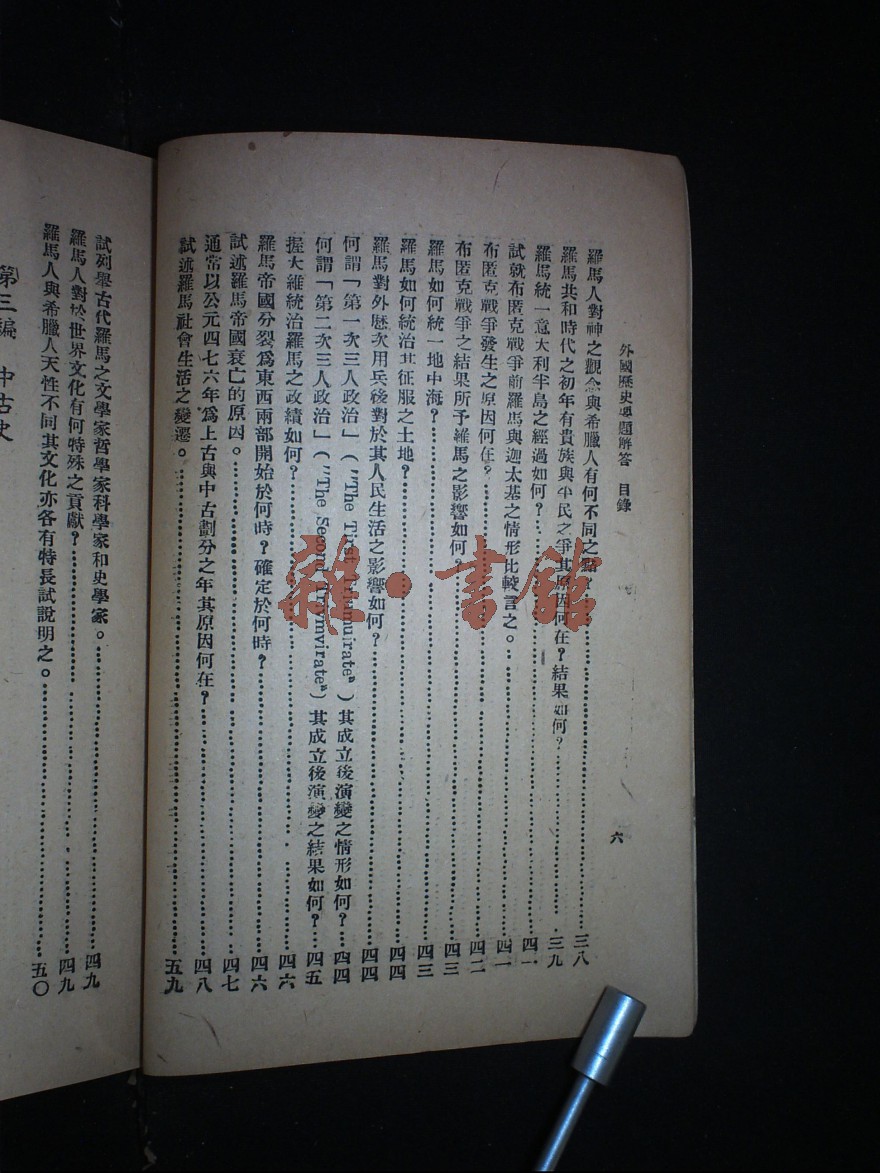 外國歷史問題解答　目錄
六
羅馬人對神之觀念與希臘人有何不同之點?……三八
羅馬共和時代之初年有貴族與平民之爭其原因何在?結果如何?……三九
羅馬統一意大利半島之經過如何?……四一
試就布匿克戰爭前羅馬與迦太基之情形比較言之。……四一
布匿克戰爭發生之原因何在?……四二
布匿克戰爭之結果所予羅馬之影響如何?……四三
羅馬如何統一地中海?……四三
羅馬如何統治其征服之土地?……四四
羅馬對外歷次用兵後對於其人民生活之影響如何?……四四
何謂「第一次三人政治」("The First)其成立後演變之情形如何?……四四
何謂「第二次三人政治」("The Second)其成立後演變之結果如何?……四五
握大維統治羅馬之政績如何?……四六
羅馬帝國分裂爲東西兩部開始於何時?確定於何時?……四六
試述羅馬帝國衰亡的原因。……四七
通常以公元四七六年爲上古與中古劃分之年其原因何在?……四八
試述羅馬社會生活之變遷。……五九
試列舉古代羅馬之文學家哲學家科學家和史學家。……四九
羅馬人對於世界文化有何特殊之貢獻?……四九
羅馬人與希臘人天性不同其文化亦各有特長試說明之。……五〇
第三編　中古史
雜·書館